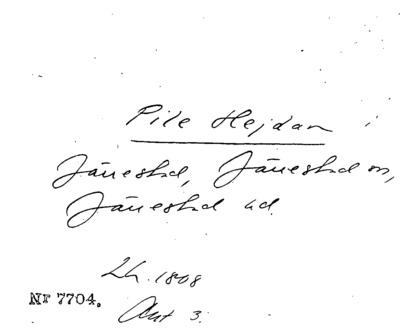 Pile Hejdan i
Järrestad, Järrestad sn,
Järrestad hd.
Lh. 1808
Nr 7704.
Akt 3.